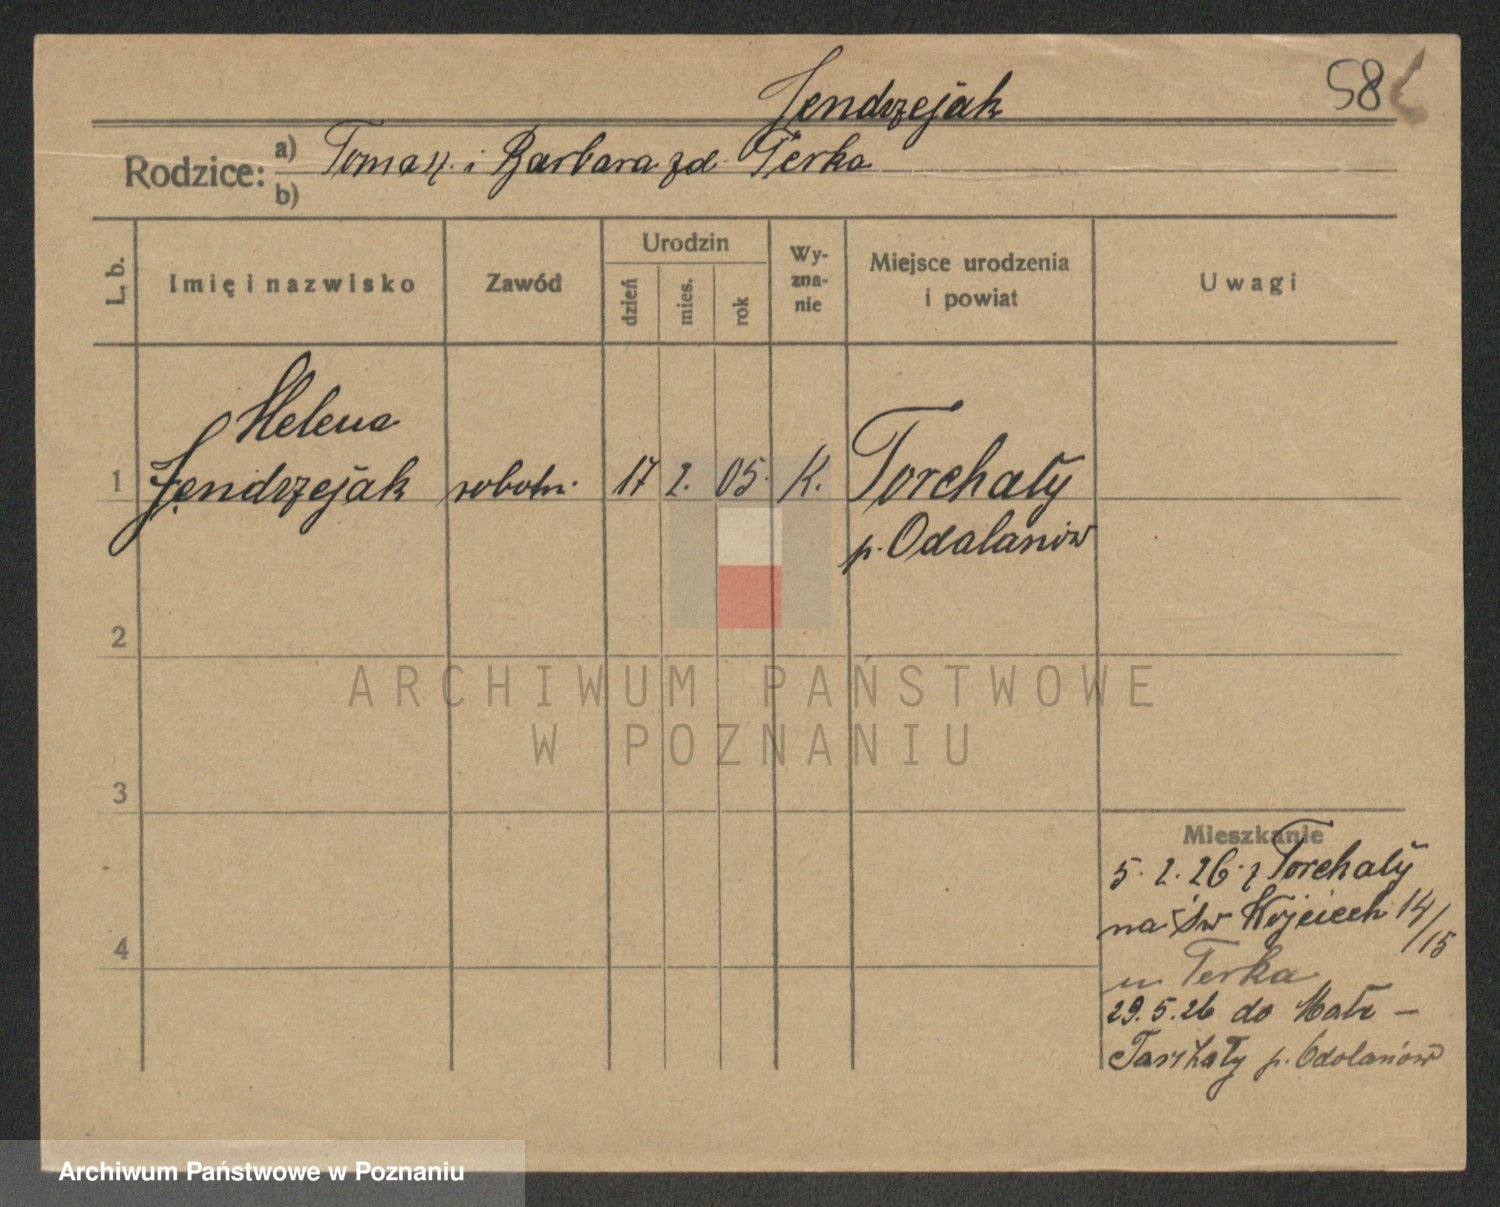 Jendrzejak
58
Rodzice: a) Tomasz i Barbara zd. Terka
b)
L. b. Imię i nazwisko Zawód Urodzin dzień mies. rok Wy-zna-nie Miejsce urodzenia i powiat Uwagi
Helena
1 Jendrzejak robotn. 17 2. 05. K. Torchały
p. Odalanów
2
ARCHIWUM PAŃSTWOWE
W POZNANIU
3
Mieszkanie
5. 2. 26. z Torchały
na św Wojciech 14/15
4
u Terka
29.5.26 do Małe –
Tarchały p. Odolanów
Archiwum Państwowe w Poznaniu